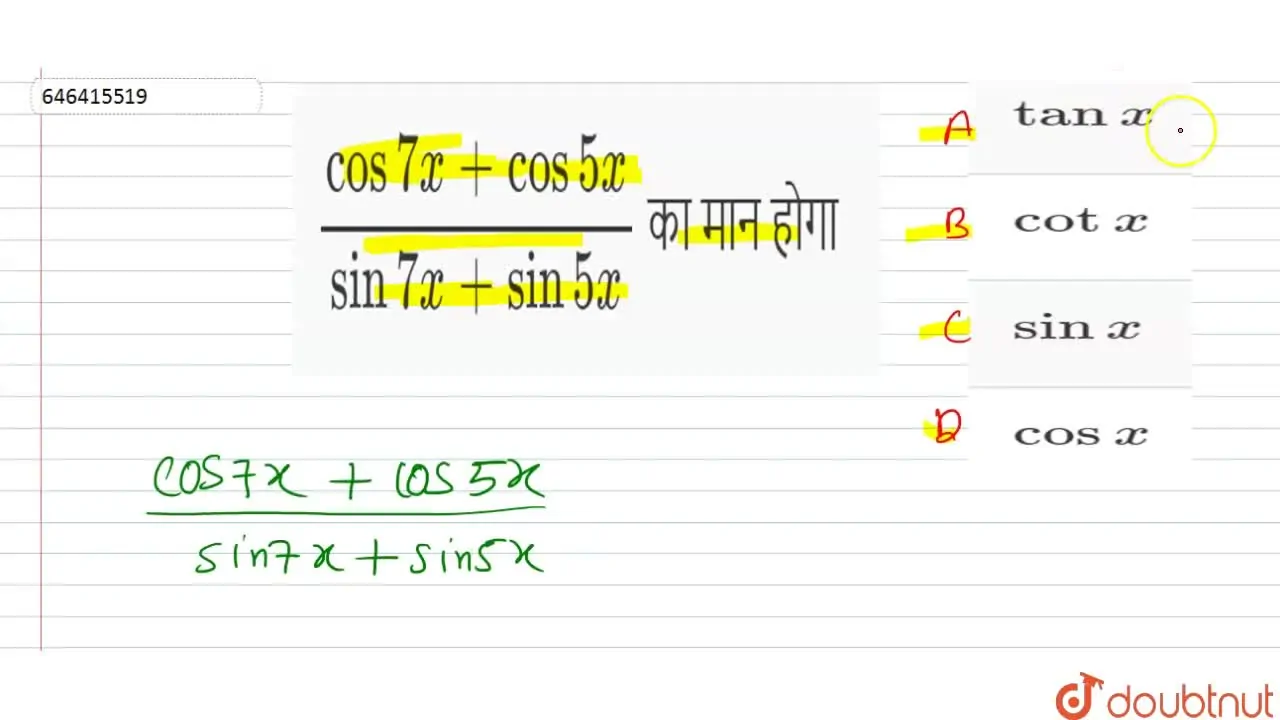 646415519
cos 7x + cos 5x
sin 7x + sin 5x
का मान होगा
A tan x
B cot x
C sin x
D cos x
cos7x + cos 5x
sin7x + sin5x
doubtnut